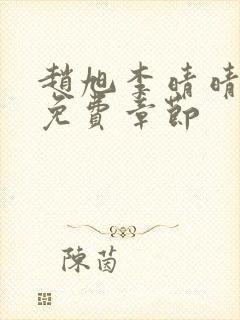 趙旭李晴晴
免費章節
陳茵